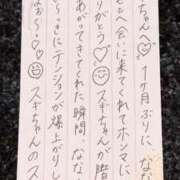 ちゃんへ♡ 1ヶ月ぶりに なな
に会いに来てくれてホンマに
りがとう♡☺ スギちゃんが階
あがってきてくれた瞬間、なな
に テンションが爆上がりし
♡♡☺ スギちゃんのス